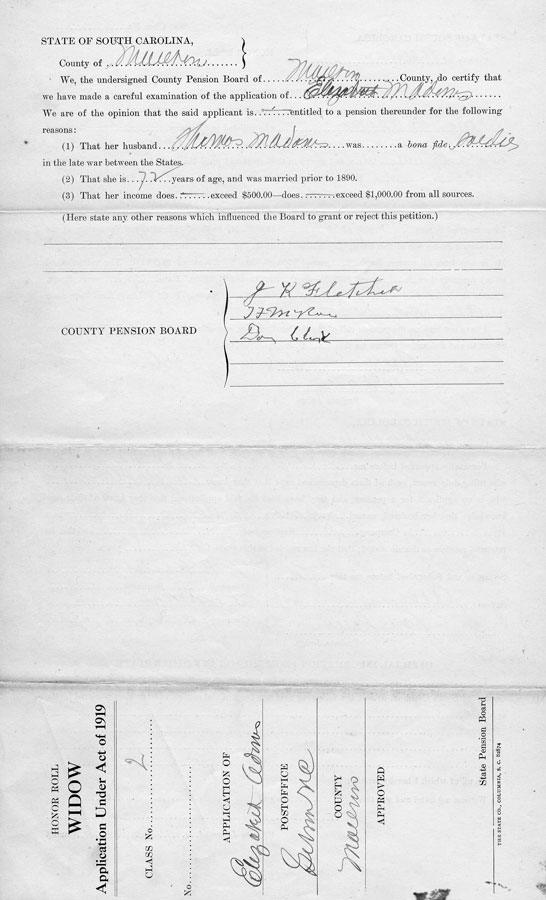 STATE OF SOUTH CAROLINA,
County of
We, the undersigned County Pension Board of County, do certify that
we have made a careful examination of the application of Elizabeth Adams
We are of the opinion that the said applicant is entitled to a pension thereunder for the following
reasons:
(1) That her husband Thomas Madams was a bona fide soldier
in the late war between the States.
(2) That she is 72 years of age, and was married prior to 1890.
(3) That her income does exceed $500.00—does exceed $1,000.00 from all sources.
(Here state any other reasons which influenced the Board to grant or reject this petition.)
COUNTY PENSION BOARD
J K Fletcher
HONOR ROLL
WIDOW
Application Under Act of 1919
CLASS No. 2
No.
APPLICATION OF
Elizabeth Adams
POSTOFFICE
COUNTY
APPROVED
State Pension Board
THE STATE CO., COLUMBIA, S. C.